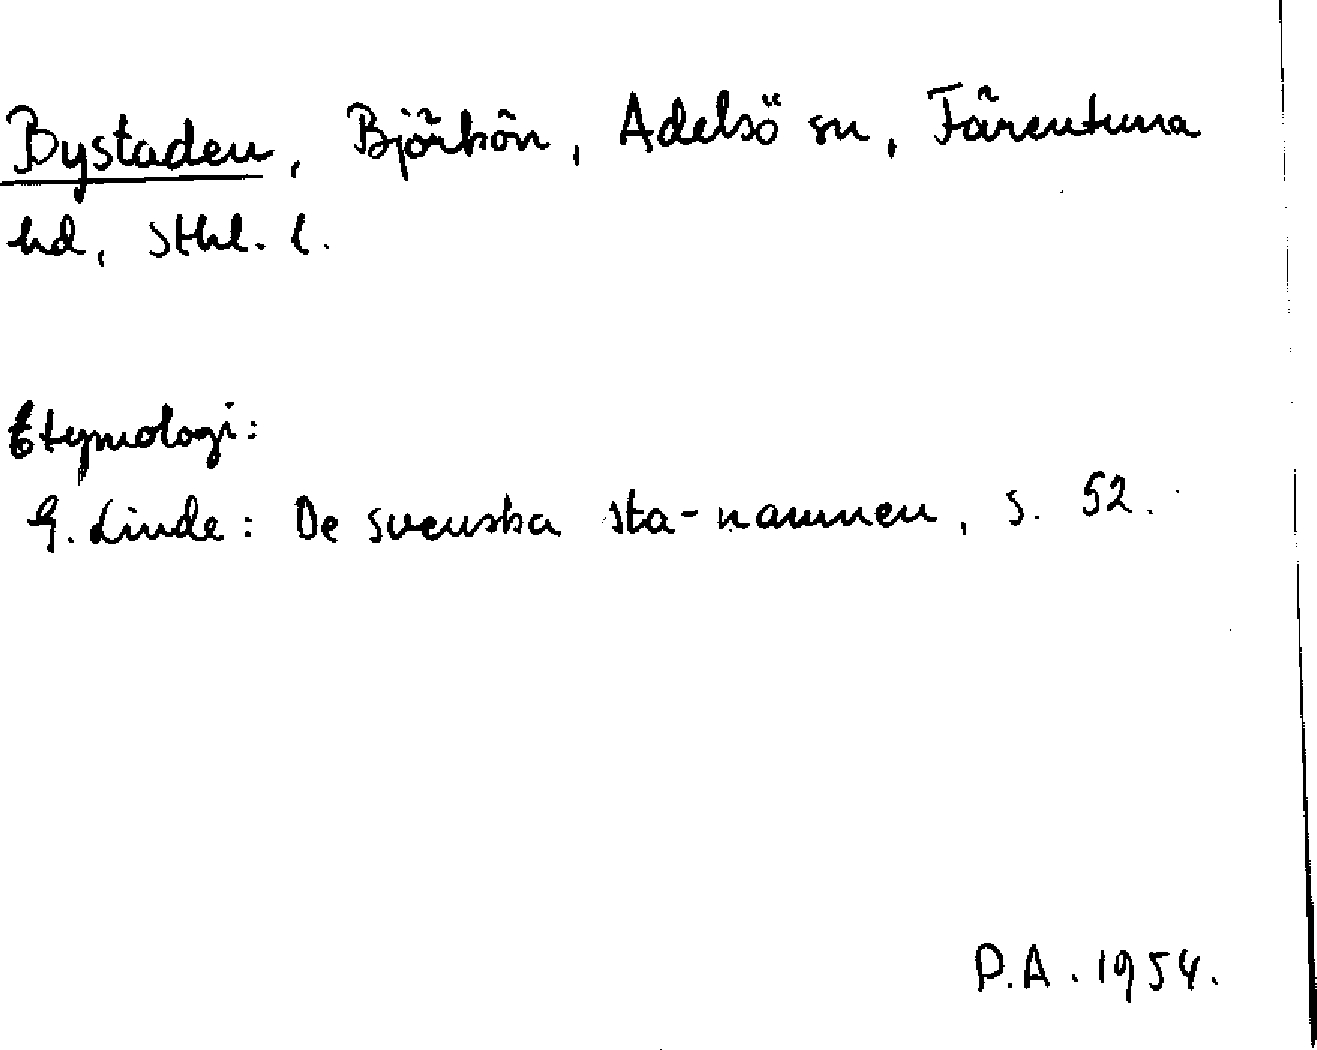 Bystaden, Björkön, Adelsö sn, Färentuna
hd, Sthl. l.
Etymologi:
G. Linde: De svenska sta-namnen, s. 52.
P.A. 1954.